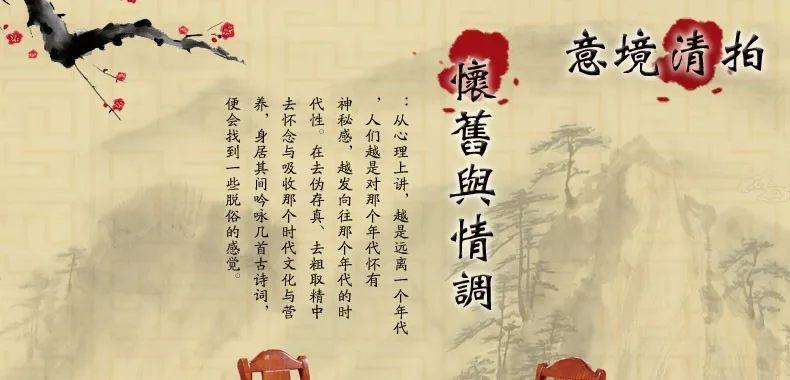 意境清拍
懷舊與情調
：从心理上讲，越是远离一个年代
，人们越是对那个年代怀有
神秘感，越发向往那个年代的时
代性。在去伪存真、去粗取精中
去怀念与吸收那个时代文化与营
养，身居其间吟咏几首古诗词，
便会找到一些脱俗的感觉。